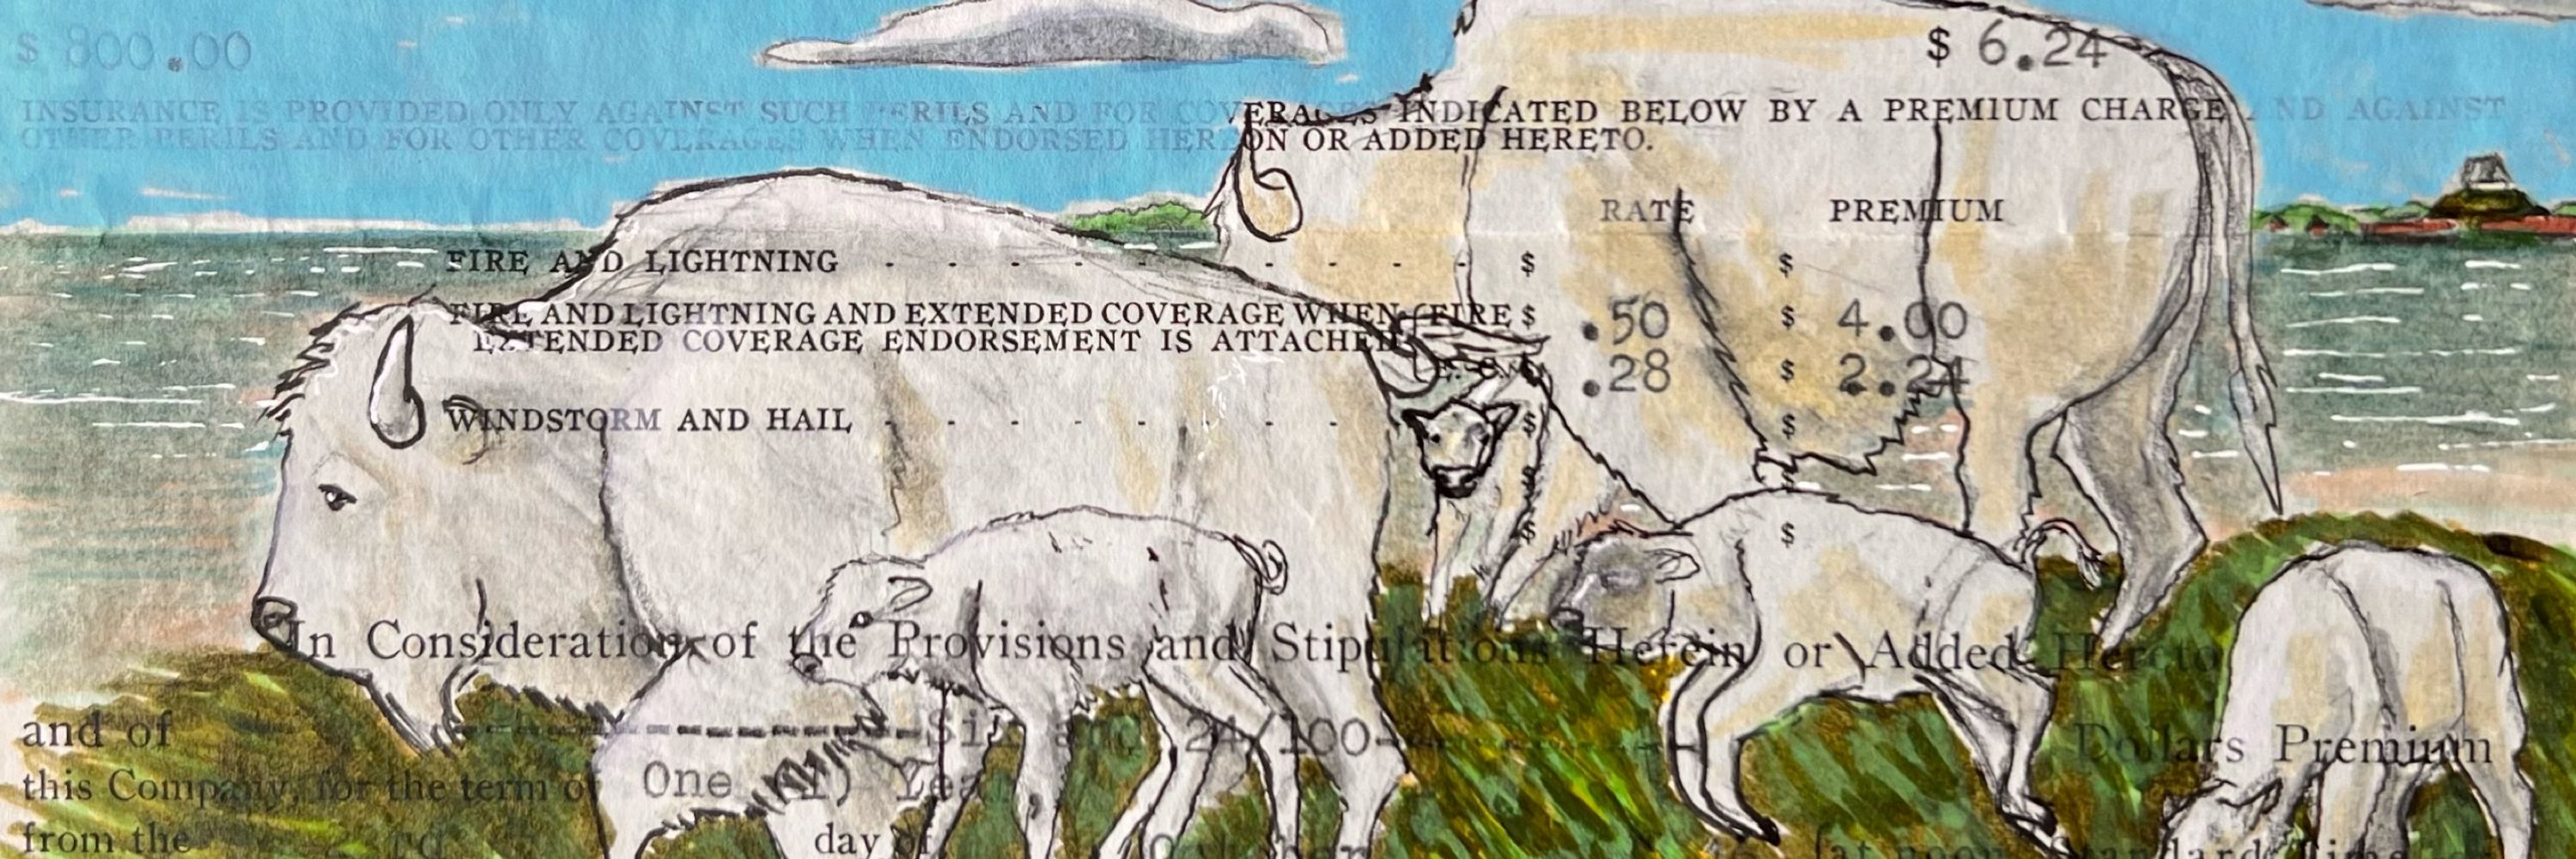 $ 800.00 $ 6.24
INSURANCE IS PROVIDED ONLY AGAINST SUCH PERILS AND FOR COVERAGES INDICATED BELOW BY A PREMIUM CHARGE AND AGAINST
OTHER PERILS AND FOR OTHER COVERAGES WHEN ENDORSED HEREON OR ADDED HERETO.
RATE PREMIUM
FIRE AND LIGHTNING - - - - - - - - - - $ $
FIRE AND LIGHTNING AND EXTENDED COVERAGE WHEN (FIRE $ .50 $ 4.00
EXTENDED COVERAGE ENDORSEMENT IS ATTACHED .28 $ 2.24
WINDSTORM AND HAIL - - - - - - - - $ $
$ $
In Consideration of the Provisions and Stipulations Herein or Added Hereto
and of ----------Six and 24/100- Dollars Premium
this Company, for the term of One (1) Year
from the day of (at noon Standard Time